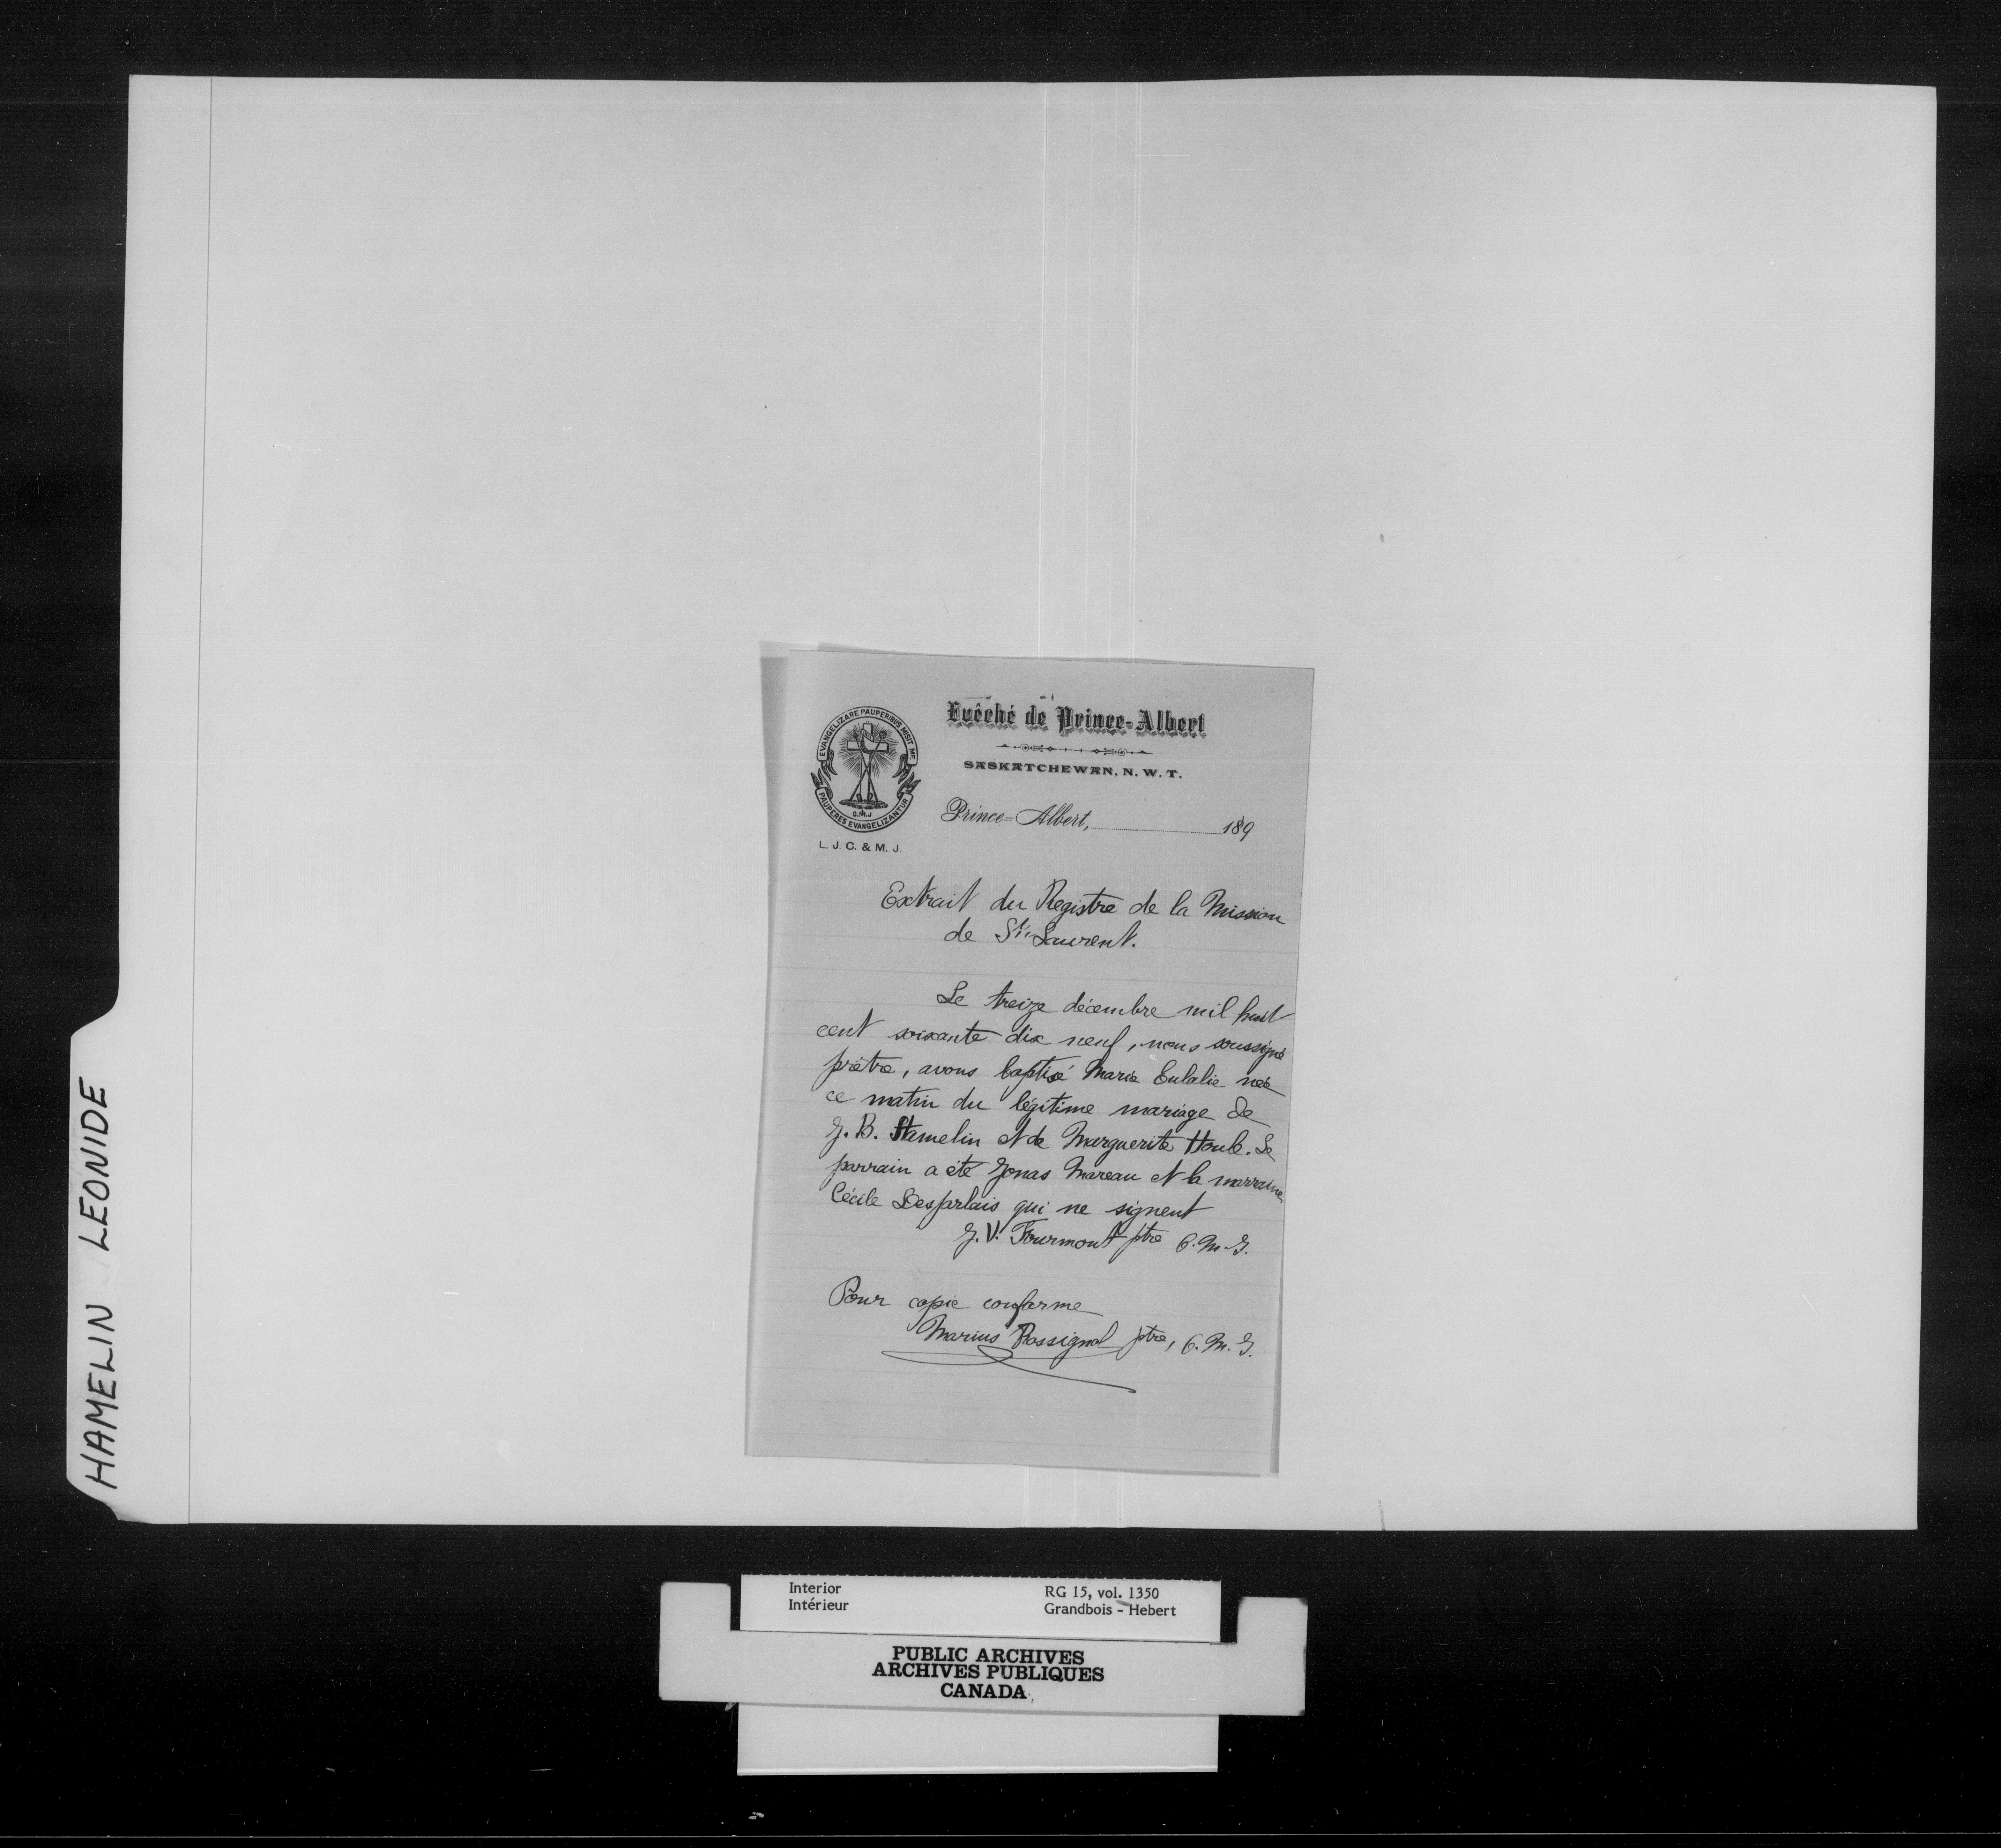 HAMELIN LEONIDE
EVANGELIZARE PAUPERIBUS MISIT ME
PAUPERES EVANGELIZANTUR
O.M.J
L. J. C. & M. J.
Evêché de Prince-Albert
SASKATCHEWAN, N. W. T.
Prince-Albert, 189
Extrait du Registre de la Mission
de St. Laurent.
Le treize décembre mil huit
cent soixante dix neuf, nous soussigné
prêtre, avons baptisé Marie Eulalie née
ce matin du légitime mariage de
J. B. Hamelin et de Marguerite Houle. Le
parrain a été Jonas Mareau et la marraine
Cécile Desjarlais qui ne signent
J. V. Fourmont ptre O. M. J.
Pour copie conforme
Marius Rossignol ptre, O. M. J.
Interior
Intérieur
RG 15, vol. 1350
Grandbois - Hebert
PUBLIC ARCHIVES
ARCHIVES PUBLIQUES
CANADA